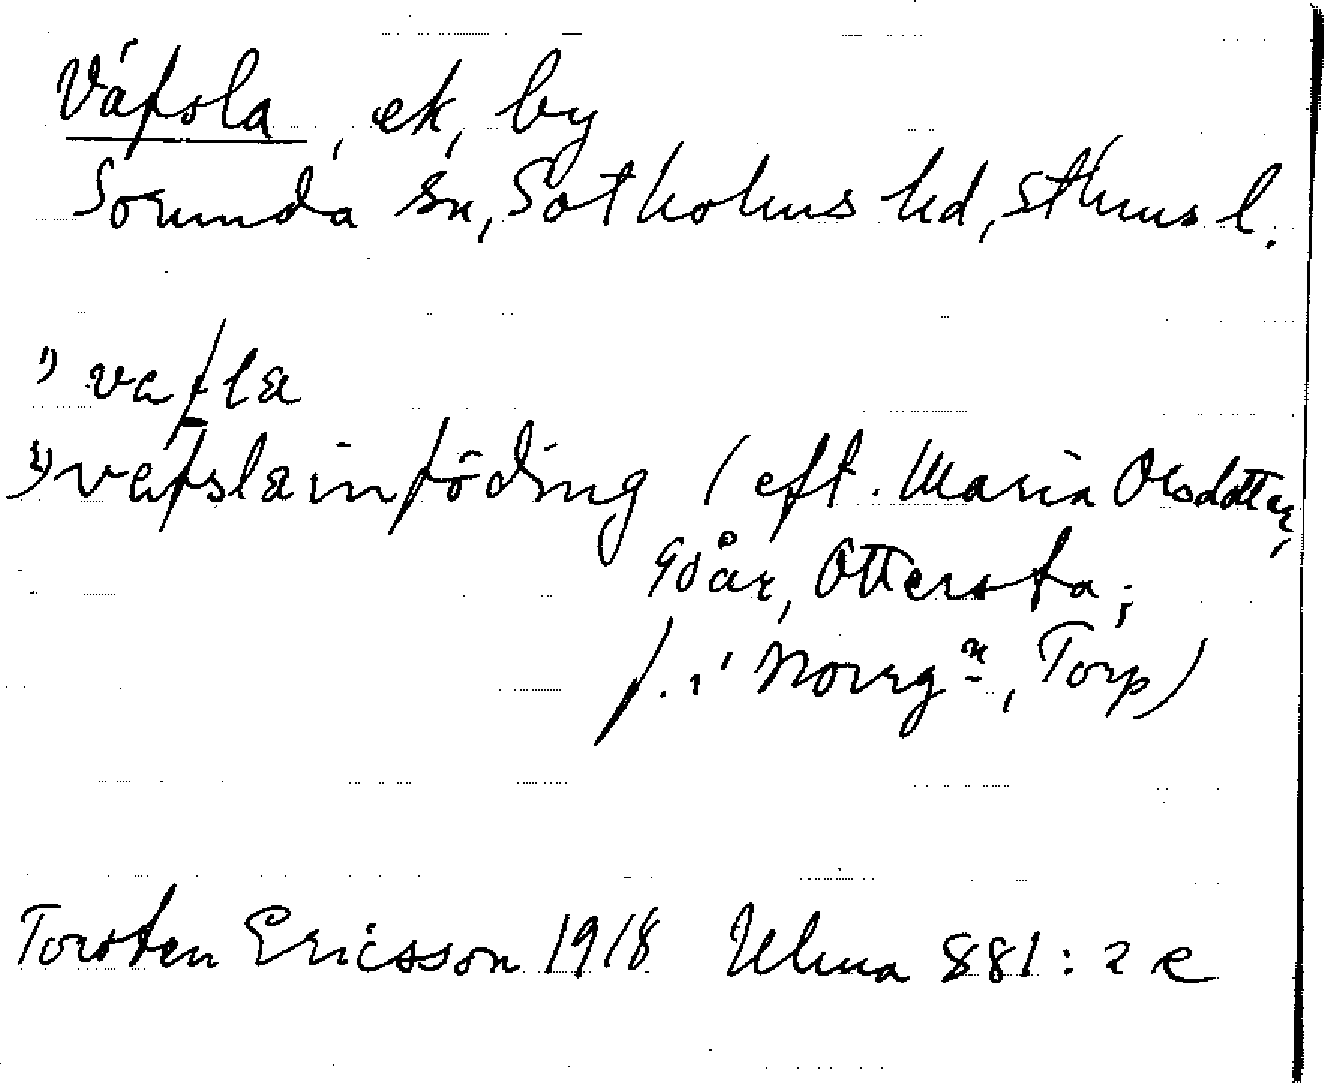 Väfsla, ek, by
Sorunda sn, Sotholms hd, Sthms l.
1) vafla
2) vafslainföding (eft. Maria Olsdotter,
90 år, Ottersta;
f. i Norrgn, Torp)
Torsten Ericsson 1918 Ulma 881:2 e